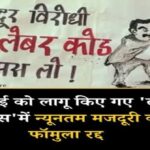 दूर विरोधी
लेबर कोड
पस लो !
ई को लागू किए गए
में न्यूनतम मजदूरी
फॉमुला रद्द